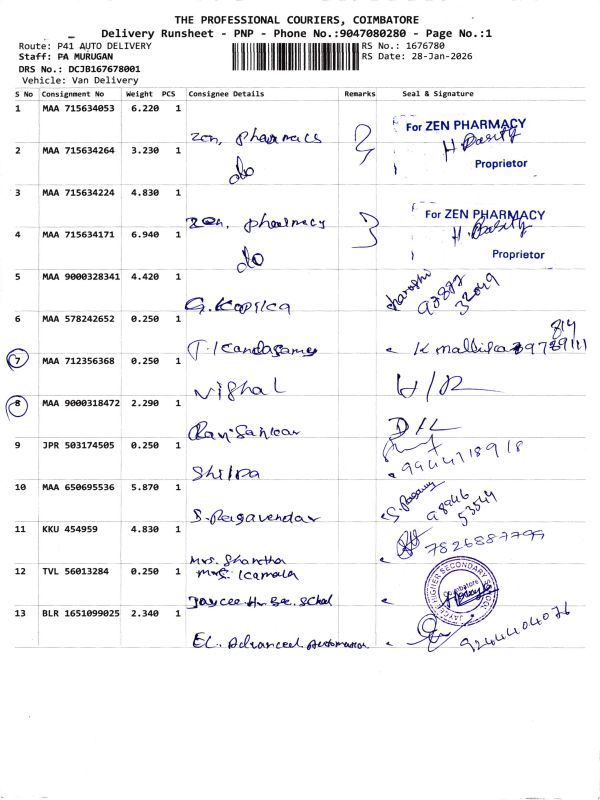 THE PROFESSIONAL COURIERS, COIMBATORE
Delivery Runsheet - PNP - Phone No.:9047080280 - Page No.:1
Route: P41 AUTO DELIVERY RS No.: 1676780
Staff: PA MURUGAN RS Date: 28-Jan-2026
DRS No.: DCJB167678001
Vehicle: Van Delivery
S No Consignment No Weight PCS Consignee Details Remarks Seal & Signature
1 MAA 715634053 6.220 1 Zen, pharmacs For ZEN PHARMACY Proprietor
2 MAA 715634264 3.230 1 do
3 MAA 715634224 4.830 1 Zen, pharmacy For ZEN PHARMACY Proprietor
4 MAA 715634171 6.940 1 do
5 MAA 9000328341 4.420 1 G. Kopica 97877 32049
6 MAA 578242652 0.250 1 T. Kandasamy K mallika
7 MAA 712356368 0.250 1 Vishal H/R
8 MAA 9000318472 2.290 1 Ravi Sankar D/L
9 JPR 503174505 0.250 1 Shilpa 9944718918
10 MAA 650695536 5.870 1 S. Ragavendar 98946 53549
11 KKU 454959 4.830 1 Mrs. Shantha 7826887799
12 TVL 56013284 0.250 1 Mrs. Kamala
Jaycee Hr. Sec. School HIGHER SECONDARY Coimbatore
13 BLR 1651099025 2.340 1 EL. Advanced Automation 9244404076